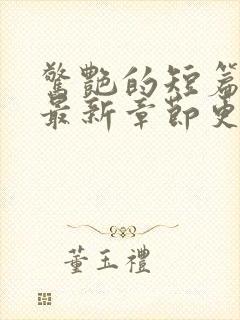 驚艷的短篇
最新章節更
董玉禮